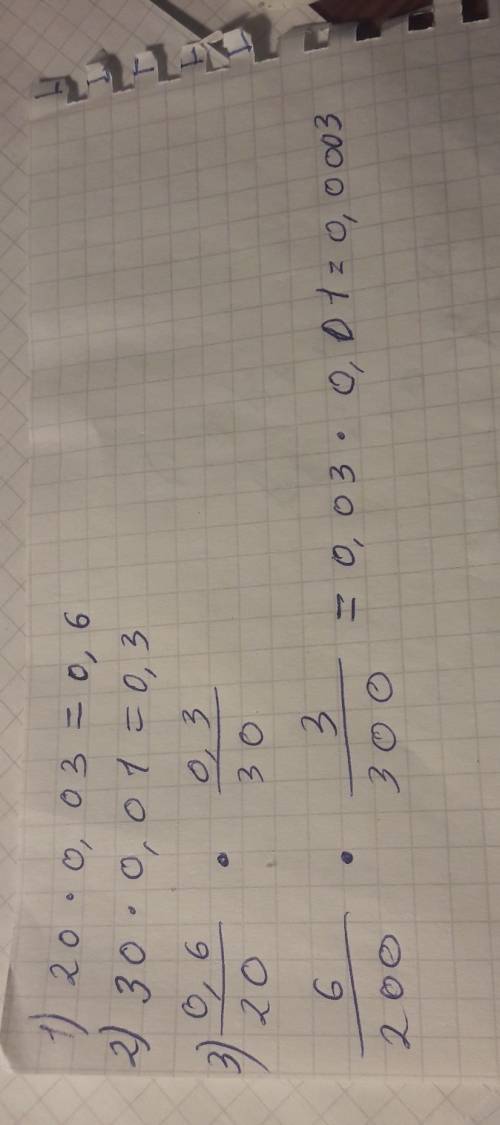 1) 20 · 0,03 = 0,6
2) 30 · 0,01 = 0,3
3) 0,6/20 · 0,3/30
6/200 · 3/300 = 0,03 · 0,01 = 0,0003